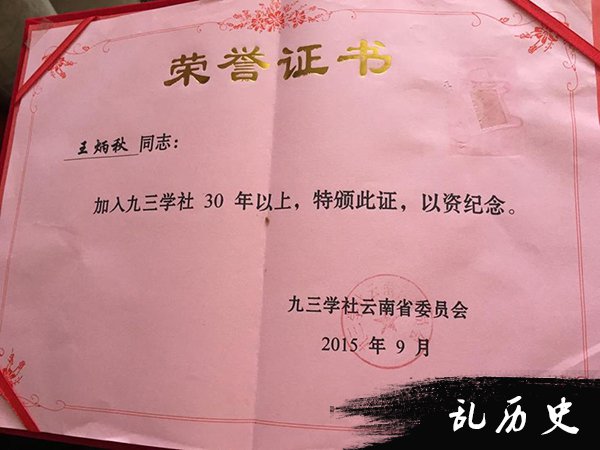 荣誉证书
王炳秋 同志：
加入九三学社 30 年以上，特颁此证，以资纪念。
九三学社云南省委员会
2015 年 9 月
乱历史